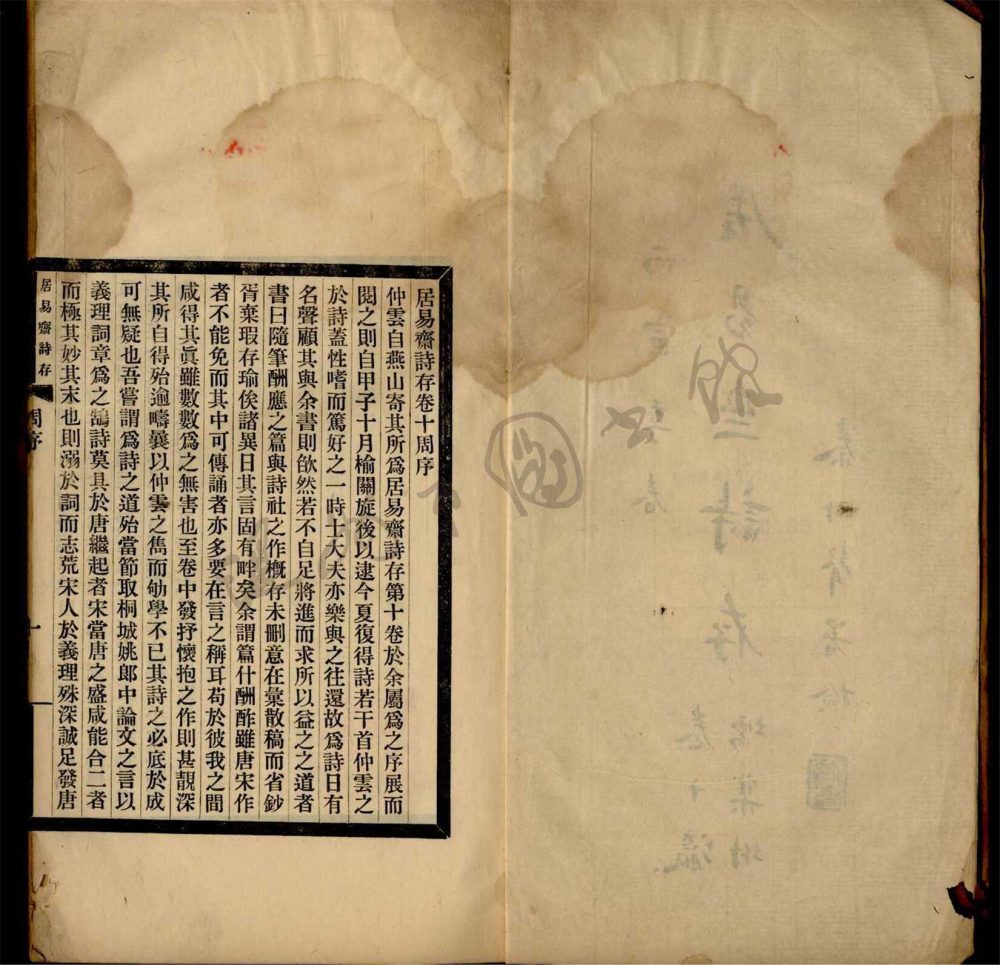 居易齋詩存卷十周序
仲雲自燕山寄其所爲居易齋詩存第十卷於余屬爲之序展而
閱之則自甲子十月榆關旋後以逮今夏復得詩若干首仲雲之
於詩蓋性嗜而篤好之一時士大夫亦樂與之往還故爲詩日有
名聲顧其與余書則欿然若不自足將進而求所以益之之道者
書曰隨筆酬應之篇與詩社之作槪存未刪意在彙散稿而省鈔
胥棄瑕存瑜俟諸異日其言固有畔矣余謂篇什酬酢雖唐宋作
者不能免而其中可傳誦者亦多要在言之稱耳苟於彼我之間
咸得其眞雖數數爲之無害也至卷中發抒懷抱之作則甚靚深
其所自得殆逾疇曩以仲雲之雋而劬學不已其詩之必底於成
可無疑也吾嘗謂爲詩之道殆當節取桐城姚郎中論文之言以
義理詞章爲之鵠詩莫具於唐繼起者宋當唐之盛咸能合二者
而極其妙其末也則溺於詞而志荒宋人於義理殊深誠足發唐
居易齋詩存
周序
一